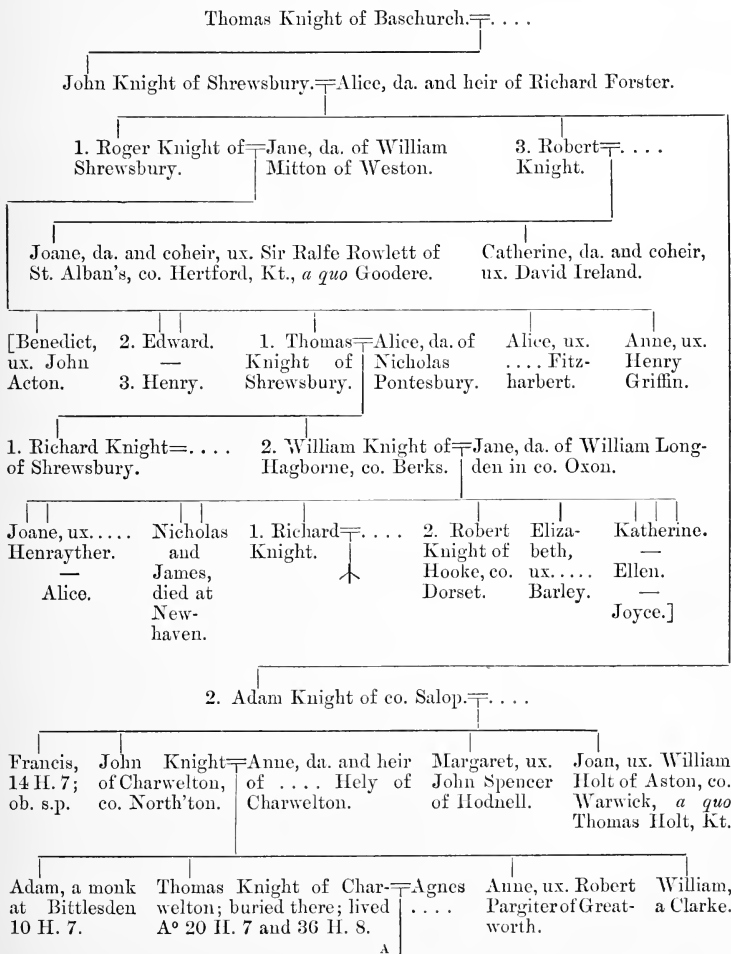 Thomas Knight of Baschurch.=. . . .
John Knight of Shrewsbury.=Alice, da. and heir of Richard Forster.
1. Roger Knight of=Jane, da. of William
Shrewsbury. Mitton of Weston.
3. Robert=. . . .
Knight.
Joane, da. and coheir, ux. Sir Ralfe Rowlett of
St. Alban's, co. Hertford, Kt., a quo Goodere.
Catherine, da. and coheir,
ux. David Ireland.
[Benedict,
ux. John
Acton.
2. Edward.
—
3. Henry.
1. Thomas=Alice, da. of
Knight of Nicholas
Shrewsbury. Pontesbury.
Alice, ux.
. . . . Fitz-
harbert.
Anne, ux.
Henry
Griffin.
1. Richard Knight=. . . .
of Shrewsbury.
2. William Knight of=Jane, da. of William Long-
Hagborne, co. Berks. den in co. Oxon.
Joane, ux.....
Henrayther.
—
Alice.
Nicholas
and
James,
died at
New-
haven.
1. Richard=. . . .
Knight.
2. Robert
Knight of
Hooke, co.
Dorset.
Eliza-
beth,
ux.....
Barley.
Katherine.
—
Ellen.
—
Joyce.]
2. Adam Knight of co. Salop.=. . . .
Francis,
14 H. 7;
ob. s.p.
John Knight=Anne, da. and heir
of Charwelton, of . . . . Hely of
co. North'ton. Charwelton.
Margaret, ux.
John Spencer
of Hodnell.
Joan, ux. William
Holt of Aston, co.
Warwick, a quo
Thomas Holt, Kt.
Adam, a monk
at Bittlesden
10 H. 7.
Thomas Knight of Char-=Agnes
welton; buried there; lived . . . .
Aº 20 H. 7 and 36 H. 8.
Anne, ux. Robert
Pargiter of Great-
worth.
William,
a Clarke.
A